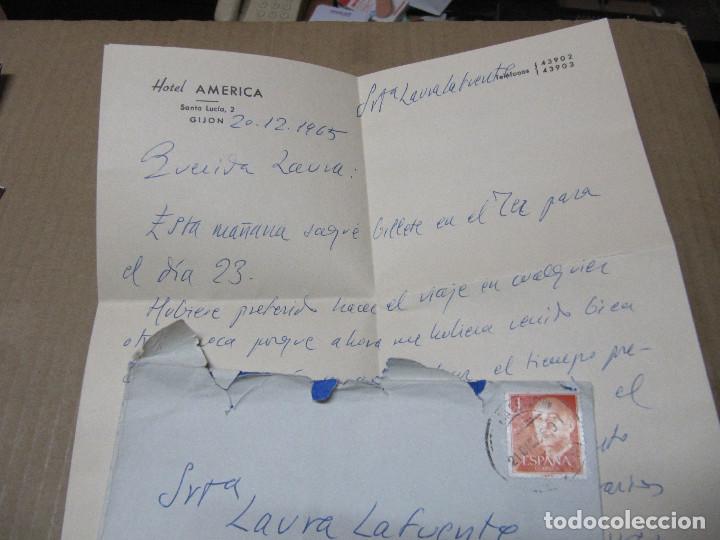 Hotel AMERICA
Santa Lucía, 2
GIJON
Teléfonos 43902
43903
Srta Laura Lafuente
20-12-1965
Querida Laura:
Esta mañana saqué billete en el para
el día 23.
Hubiese preferido hacer el viaje en cualquier
porque ahora me hubiera venido bien
el tiempo pre-
el
ESPAÑA
Srta
Laura Lafuente
todocoleccion